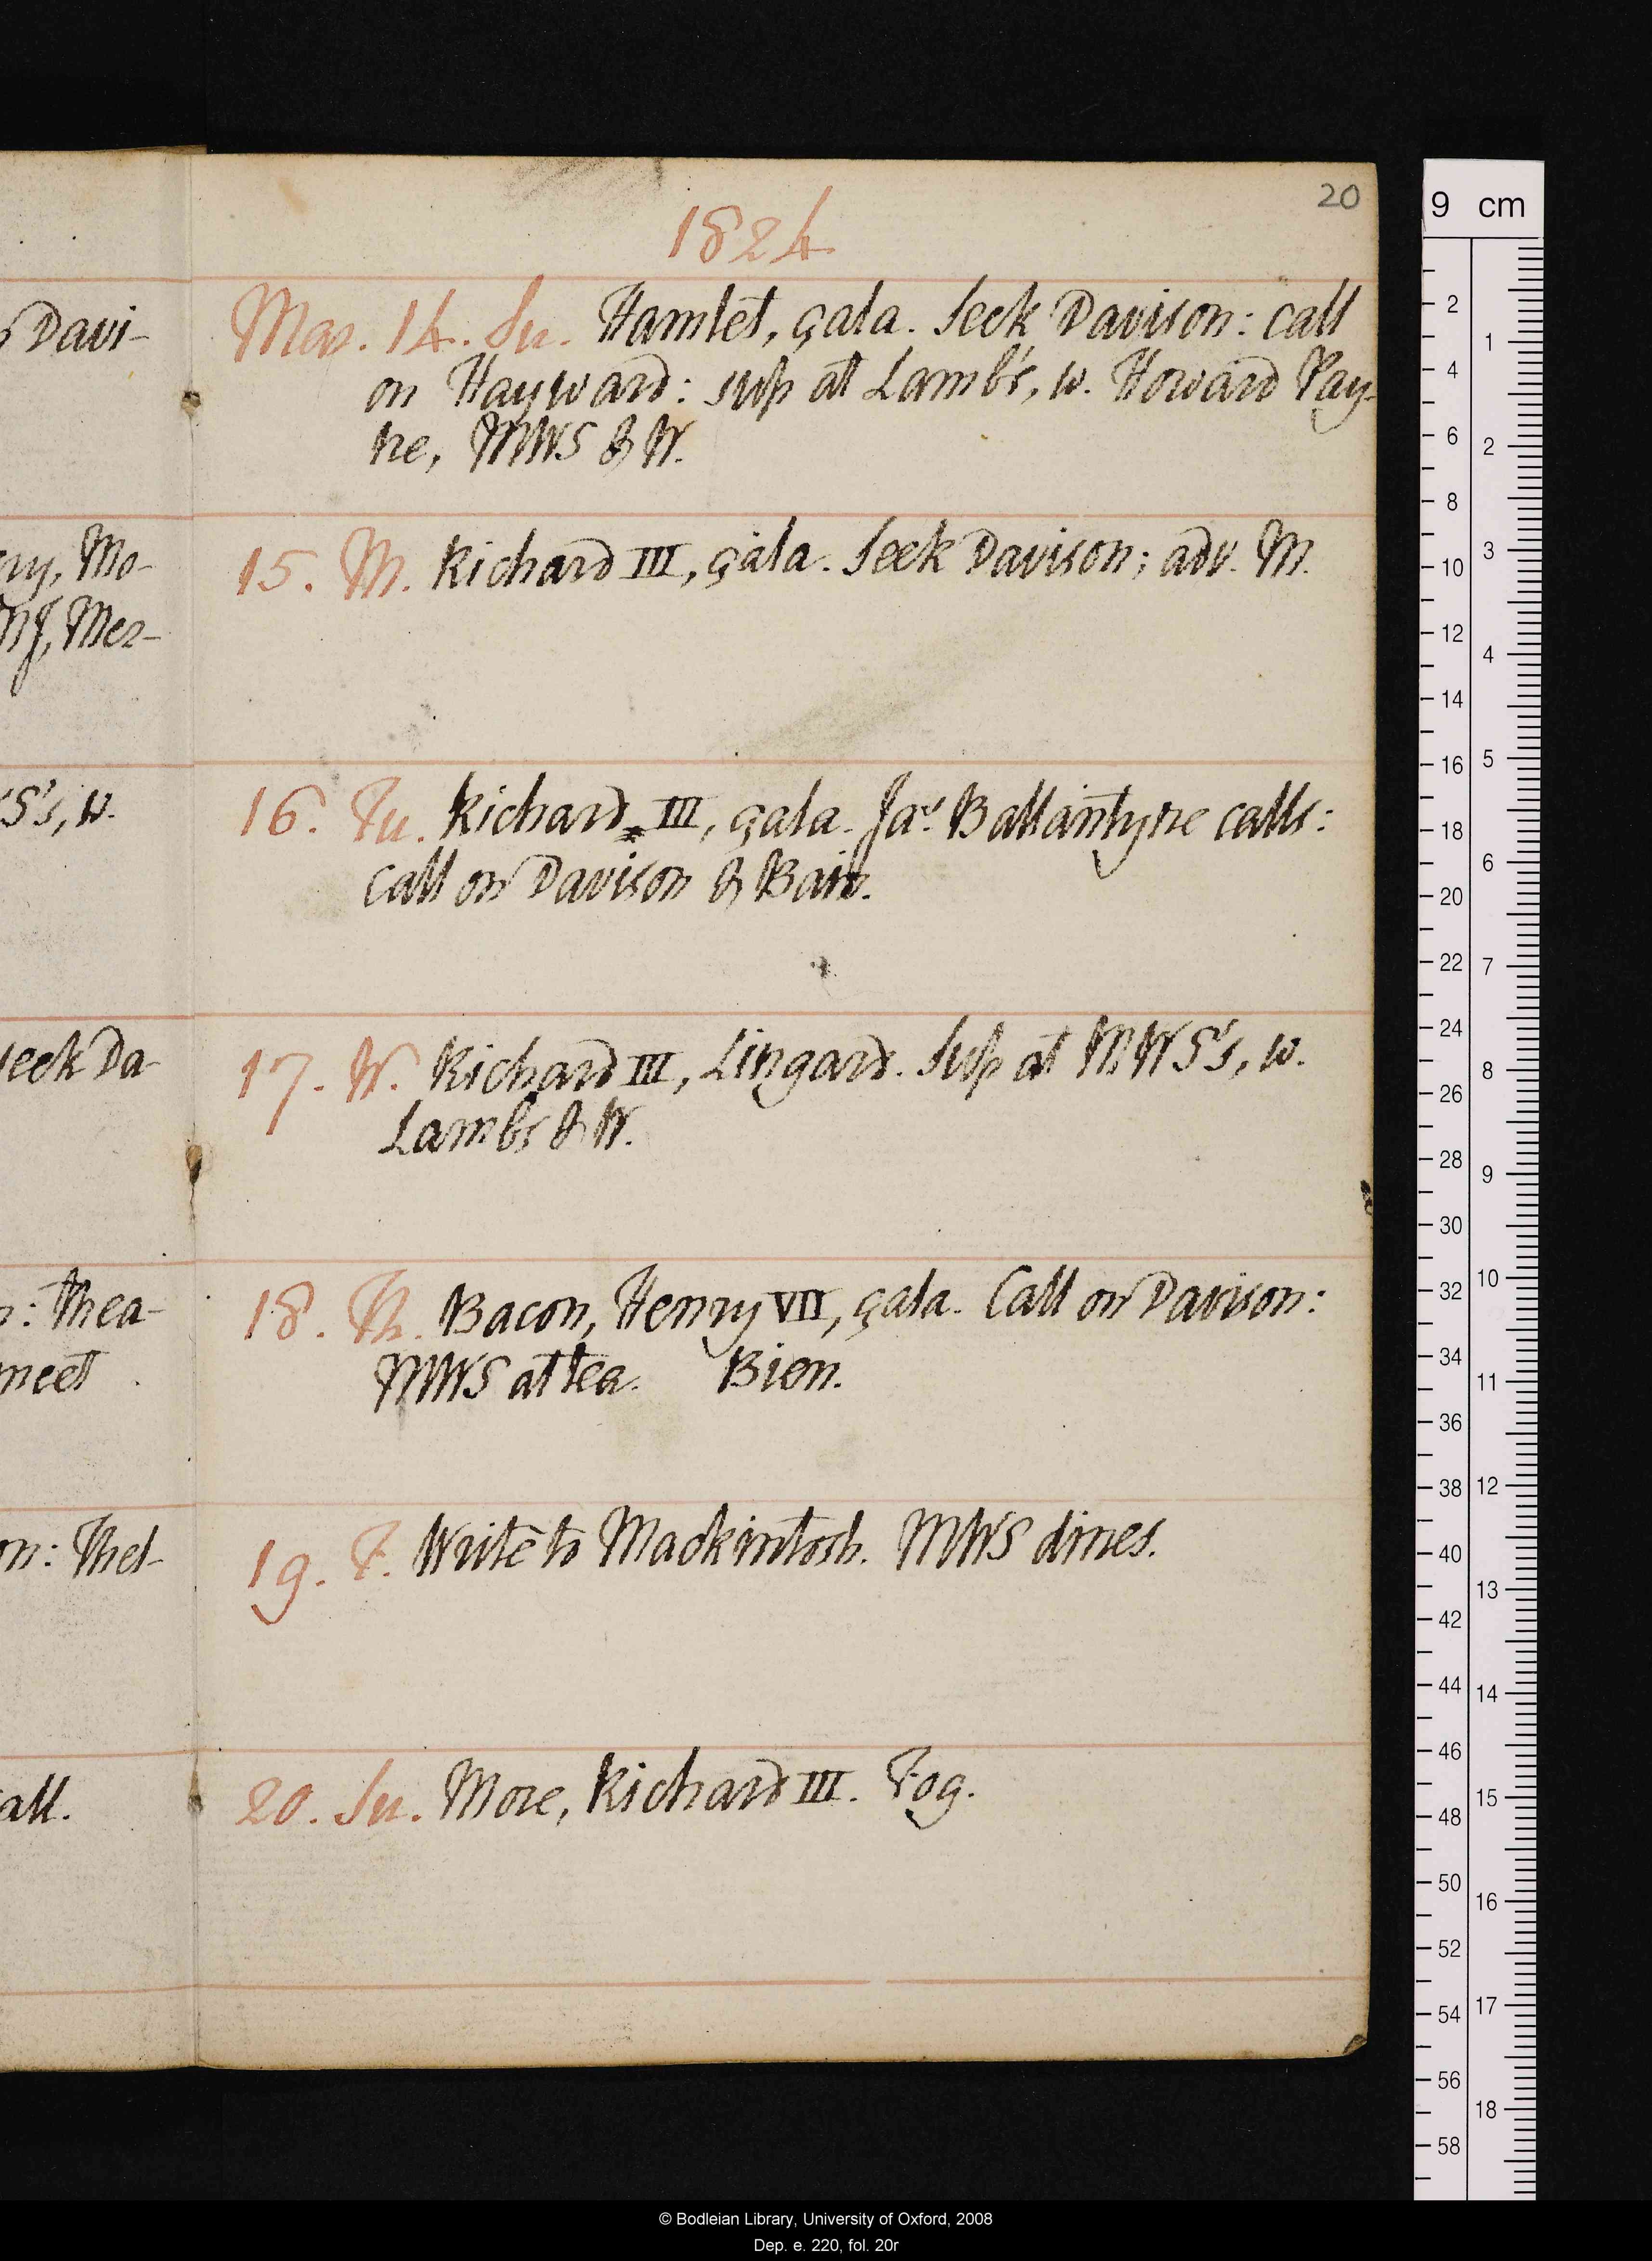 20
1824
Mar. 14. Su. Hamlet, çala. Seek Davison: call
on Hayward: sup at Lamb's, w. Howard Pay-
ne, MWS & W.
15. M. Richard III, çala. Seek Davison; adv. M.
16. Tu. Richard III, çala. Jas. Ballantyne calls:
call on Davison &
17. W. Richard III, Lingard. Sup at MWS's, w.
Lambs & W.
18. Th. Bacon, Henry VII, çala. Call on Davison:
MWS at tea. Bien.
19. F. Write to Mackintosh. MWS dines.
20. Su. More, Richard III. Fog.
Davi-
ry, Mo-
Mer-
S's, w.
seek Da-
: Thea-
meet
on: Thel-
all.
9 cm
2
4
6
8
10
12
14
16
18
20
22
24
26
28
30
32
34
36
38
40
42
44
46
48
50
52
54
56
58
1
2
3
4
5
6
7
8
9
10
11
12
13
14
15
16
17
18
© Bodleian Library, University of Oxford, 2008
Dep. e. 220, fol. 20r